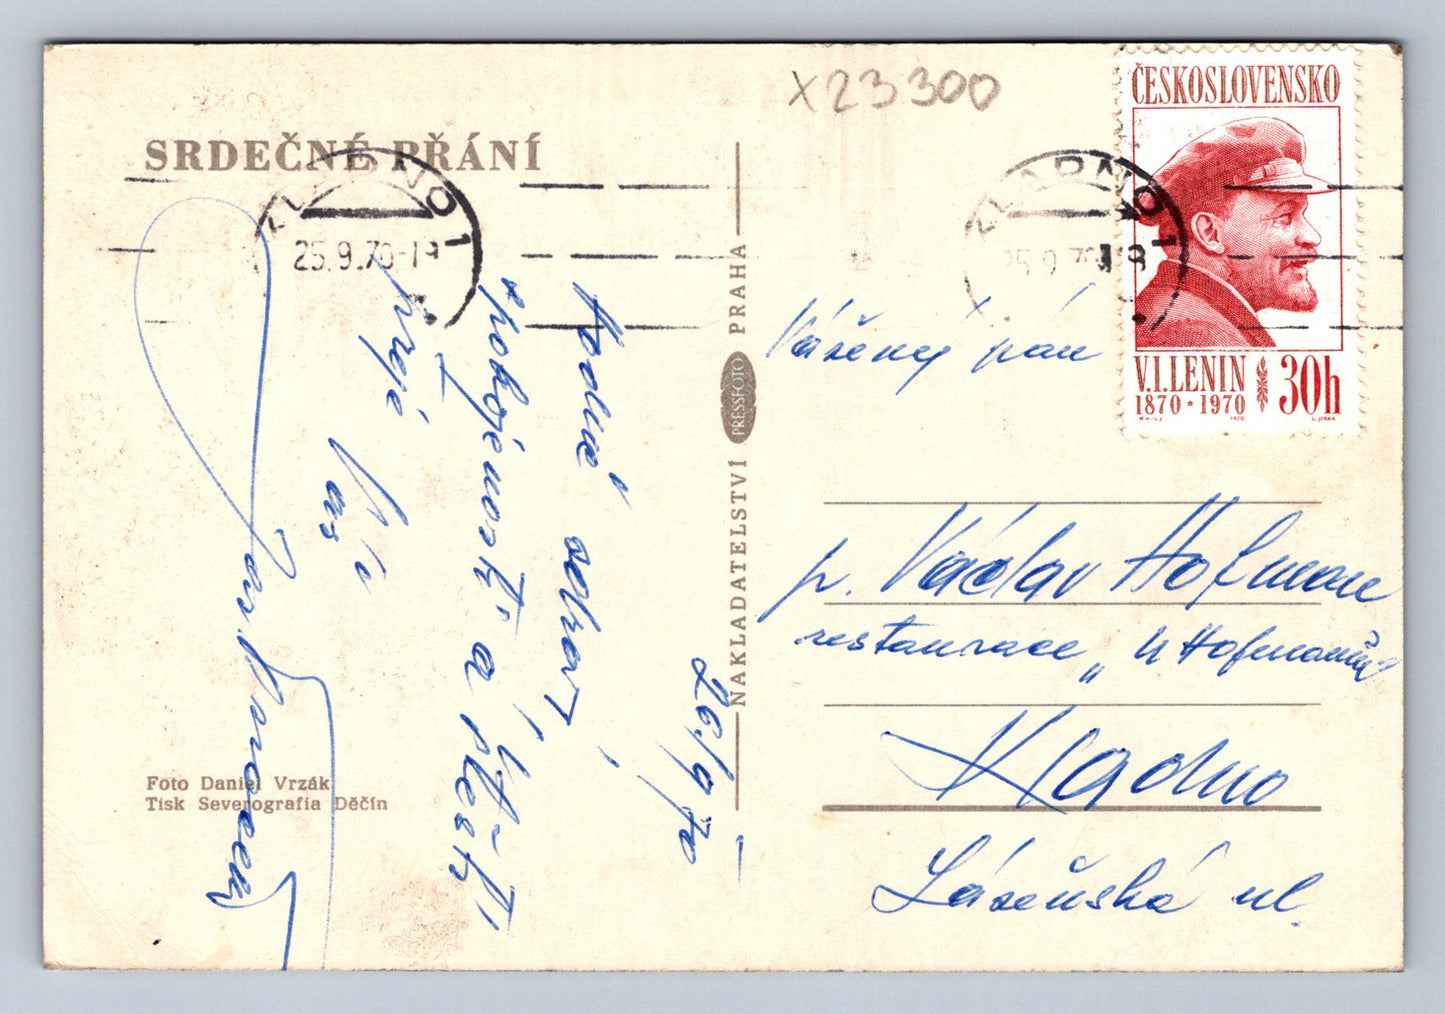 X23300
SRDEČNÉ PŘÁNÍ
KLADNO 1
25.9.70-19
KLADNO 1
25.9.70-19
ČESKOSLOVENSKO
V.I.LENIN 30h
1870 * 1970
1970
L. JIRKA
Hodně zdraví,
spokojenosti a štěstí
přeje
Váš
26/9 70
NAKLADATELSTVÍ PRESSFOTO PRAHA
Vážený pán
p. Václav Hofman
restaurace „U Hofmanů"
Kladno
Lázeňská ul.
Foto Daniel Vrzák
Tisk Severografia Děčín